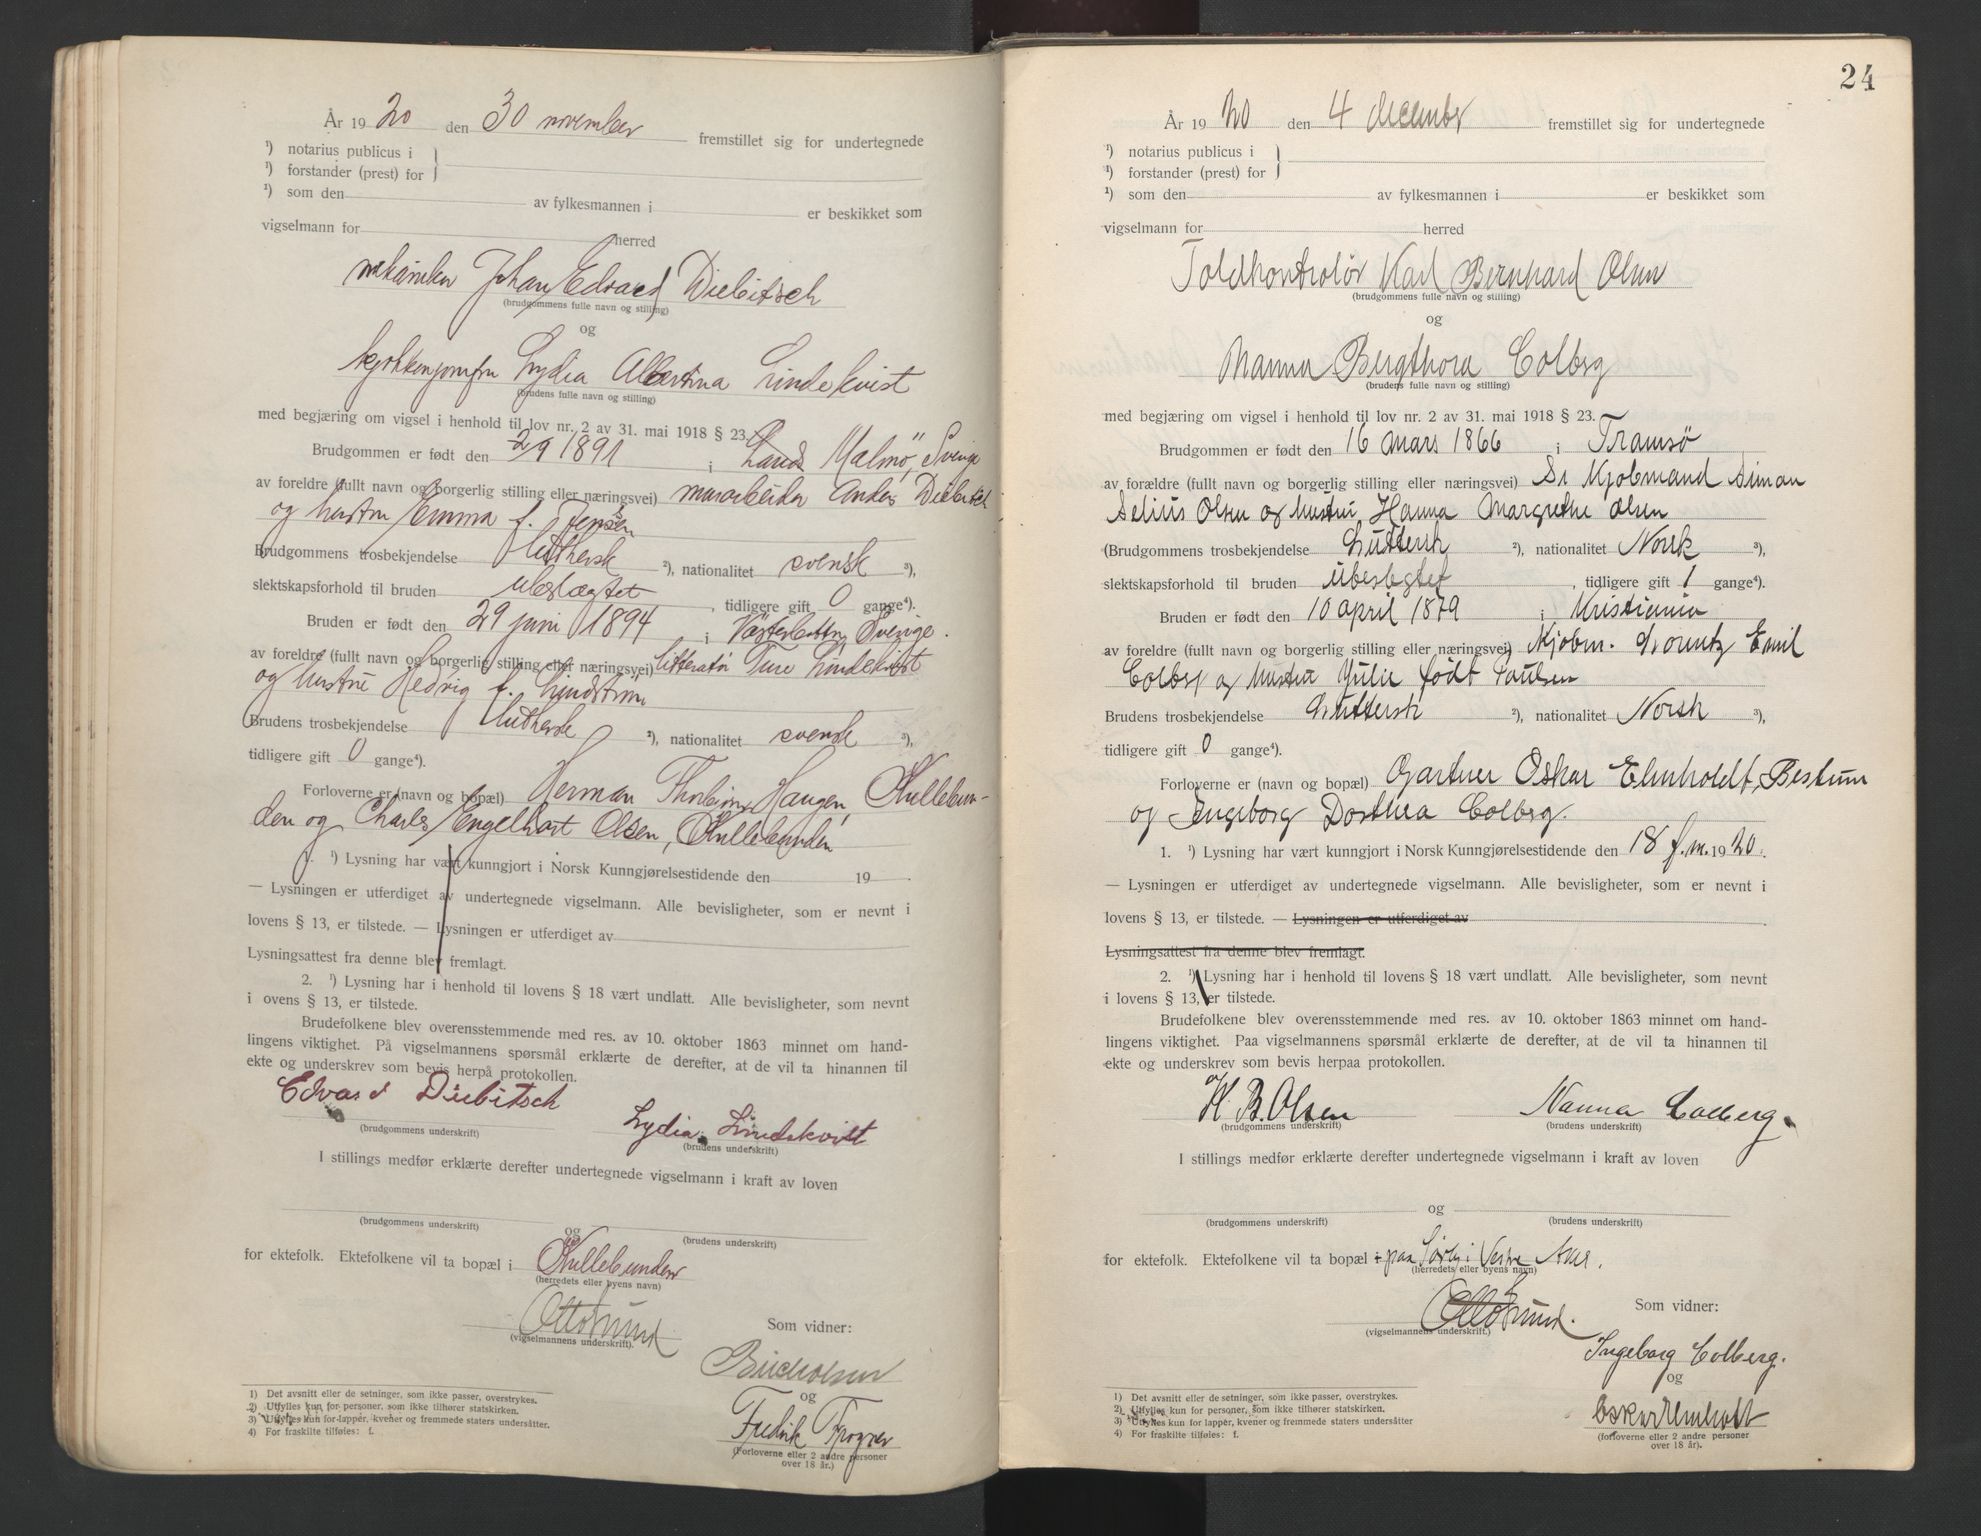 År 1920 den 30 november fremstillet sig for undertegnede
¹) notarius publicus i
¹) forstander (prest) for
¹) som den av fylkesmannen i er beskikket som
vigselmann for herred
mekaniker Johan Edvard Diebitsch
(brudgommens fulle navn og stilling)
og
kjøkkenjomfru Lydia Albertina Lindekvist
(brudens fulle navn og stilling)
med begjæring om vigsel i henhold til lov nr. 2 av 31. mai 1918 § 23.
Brudgommen er født den 2/9 1891 i Malmö, Sverige
av foreldre (fullt navn og borgerlig stilling eller næringsvei) murarbeider Anders Diebitsch
og hustru Emma f. Jensen
Brudgommens trosbekjendelse luthersk ²), nationalitet svensk ³),
slektskapsforhold til bruden ubeslægtet, tidligere gift 0 gange⁴).
Bruden er født den 29 juni 1894 i Västerbotten, Sverige.
av foreldre (fullt navn og borgerlig stilling eller næringsvei) litteratør Ture Lindekvist
og hustru Hedvig f. Lindstrøm
Brudens trosbekjendelse luthersk ²), nationalitet svensk ³),
tidligere gift 0 gange⁴).
Forloverne er (navn og bopæl) Herman Thorbjørn Haugen, Kullebun-
den og Charles Engelhart Olsen, Kullebunden
1. ¹) Lysning har vært kunngjort i Norsk Kunngjørelsestidende den 19 .
— Lysningen er utferdiget av undertegnede vigselmann. Alle bevisligheter, som er nevnt i
lovens § 13, er tilstede. — Lysningen er utferdiget av
Lysningsattest fra denne blev fremlagt.
2. ¹) Lysning har i henhold til lovens § 18 vært undlatt. Alle bevisligheter, som nevnt
i ovens § 13, er tilstede.
Brudefolkene blev overensstemmende med res. av 10. oktober 1863 minnet om hand-
lingens viktighet. På vigselmannens spørsmål erklærte de derefter, at de vil ta hinannen til
ekte og underskrev som bevis herpå protokollen.
Edvard Diebitsch
(brudgommens underskrift)
Lydia Lindekvist
(brudens underskrift)
I stillings medfør erklærte derefter undertegnede vigselmann i kraft av loven
og
(brudgommens underskrift) (brudens underskrift)
for ektefolk. Ektefolkene vil ta bopæl i Kullebunden
(herredets eller byens navn)
Otto Lund
(vigselmannens underskrift).
Som vidner:
og
Fredrik Frogner
(Forloverne eller 2 andre personer
over 18 år.)
1) Det avsnitt eller de setninger, som ikke passer, overstrykes.
2) Utfylles kun for personer, som ikke tilhører statskirken.
3) Utfylles kun for lapper, kvener og fremmede staters undersåtter.
4) For fraskilte tilføies: f.
24
År 1920 den 4 december fremstillet sig for undertegnede
¹) notarius publicus i
¹) forstander (prest) for
¹) som den av fylkesmannen i er beskikket som
vigselmann for herred
Toldkontrolør Karl Bernhard Olsen
(brudgommens fulle navn og stilling)
og
Nanna Bergthora Colberg
(brudens fulle navn og stilling)
med begjæring om vigsel i henhold til lov nr. 2 av 31. mai 1918 § 23.
Brudgommen er født den 16 mars 1866 i Tromsø
av forældre (fullt navn og borgerlig stilling eller næringsvei) Kjøbmand Simon
Selius Olsen og hustru Hanna Margrethe Olsen
(Brudgommens trosbekjendelse Luttersk ²), nationalitet Norsk ³),
slektskapsforhold til bruden ubeslegtet, tidligere gift 1 gange⁴).
Bruden er født den 10 april 1879 i Kristiania
av foreldre (fullt navn og borgerlig stilling eller næringsvei) Kjøbm. Lorentz Emil
Colberg og hustru Julie født Paulsen
Brudens trosbekjendelse Luttersk ²), nationalitet Norsk ³),
tidligere gift 0 gange⁴).
Forloverne er (navn og bopæl) Gartner Oskar Elmholdt, Bestum
og Ingeborg Dorthea Colberg.
1. ¹) Lysning har vært kunngjort i Norsk Kunngjørelsestidende den 18 f.m. 1920.
— Lysningen er utferdiget av undertegnede vigselmann. Alle bevisligheter, som er nevnt i
lovens § 13, er tilstede. — Lysningen er utferdiget av
Lysningsattest fra denne blev fremlagt.
2. ¹) Lysning har i henhold til lovens § 18 vært undlatt. Alle bevisligheter, som nevnt
i lovens § 13, er tilstede.
Brudefolkene blev overensstemmende med res. av 10. oktober 1863 minnet om hand-
lingens viktighet. Paa vigselmannens spørsmål erklærte de derefter, at de vil ta hinannen til
ekte og underskrev som bevis herpaa protokollen.
K. B. Olsen Nanna Colberg.
(brudgommens underskrift) (brudens underskrift)
I stillings medfør erklærte derefter undertegnede vigselmann i kraft av loven
og
(brudgommens underskrift) (brudens underskrift)
for ektefolk. Ektefolkene vil ta bopæl i paa Sørby i Vestre Aker.
(herredets eller byens navn)
Otto Lund.
(vigselmannens underskrift.)
Som vidner:
Ingeborg Colberg.
og
Oskar Elmholdt
(forloverne eller 2 andre personer
over 18 år).
1) Det avsnitt eller de setninger, som ikke passer, overstrykes.
2) Utfylles kun for personer, som ikke tilhører statskirken.
3) Utfylles kun for lapper, kvener og fremmede staters undersåtter
4) For fraskilte tilføies: f.